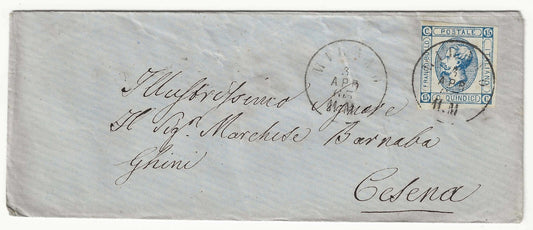 C POSTALE 15
FRANCOBOLLO ITALIANO
15 QUINDICI C
MILANO
3
APR
Illustrissimo Signore
Il Sigr. Marchese Barnaba
Ghini
Cesena